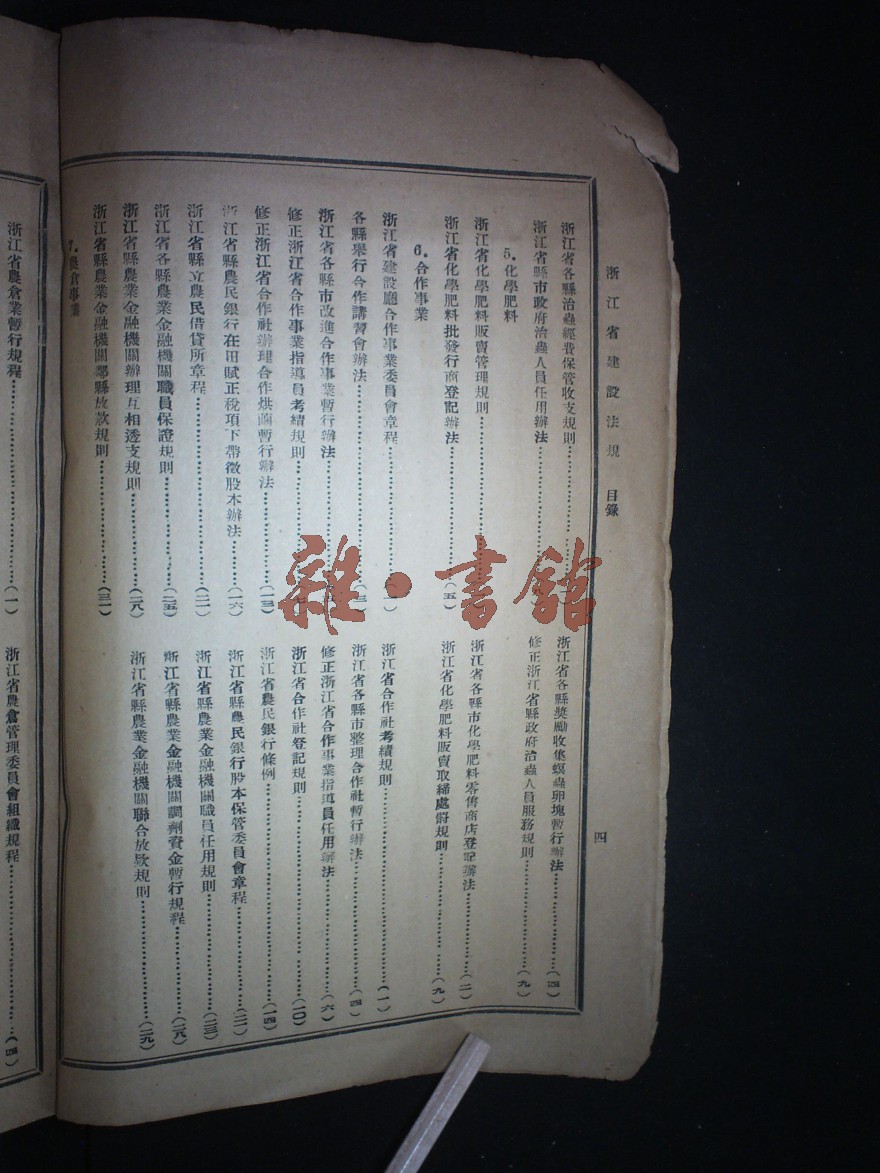 浙江省建設法規 目錄
四
浙江省各縣治蟲經費保管收支規則
浙江省各縣獎勵收集螟蟲卵塊暫行辦法(四)
浙江省縣市政府治蟲人員任用辦法
修正浙江省縣政府治蟲人員服務規則(九)
5. 化學肥料
浙江省化學肥料販賣管理規則
浙江省各縣市化學肥料零售商店登記辦法(二)
浙江省化學肥料批發行商登記辦法(五)
浙江省化學肥料販賣取締處罰規則(九)
6. 合作事業
浙江省建設廳合作事業委員會章程(一)
浙江省合作社考績規則(一)
各縣舉行合作講習會辦法(三)
浙江省各縣市整理合作社暫行辦法(四)
浙江省各縣市改進合作事業暫行辦法
修正浙江省合作事業指導員任用辦法(六)
修正浙江省合作事業指導員考績規則
浙江省合作社登記規則(一〇)
修正浙江省合作社辦理合作烘繭暫行辦法(一三)
浙江省農民銀行條例(一四)
浙江省縣農民銀行在田賦正稅項下帶徵股本辦法(一六)
浙江省縣農民銀行股本保管委員會章程(二一)
浙江省縣立農民借貸所章程(二一)
浙江省縣農業金融機關職員任用規則(二三)
浙江省各縣農業金融機關職員保證規則(二五)
浙江省縣農業金融機關調劑資金暫行規程(二八)
浙江省縣農業金融機關辦理互相透支規則(二八)
浙江省縣農業金融機關聯合放款規則(二九)
浙江省縣農業金融機關鄰縣放款規則(三一)
7. 農倉事業
浙江省農倉業暫行規程(一)
浙江省農倉管理委員會組織規程(四)
雜·書館